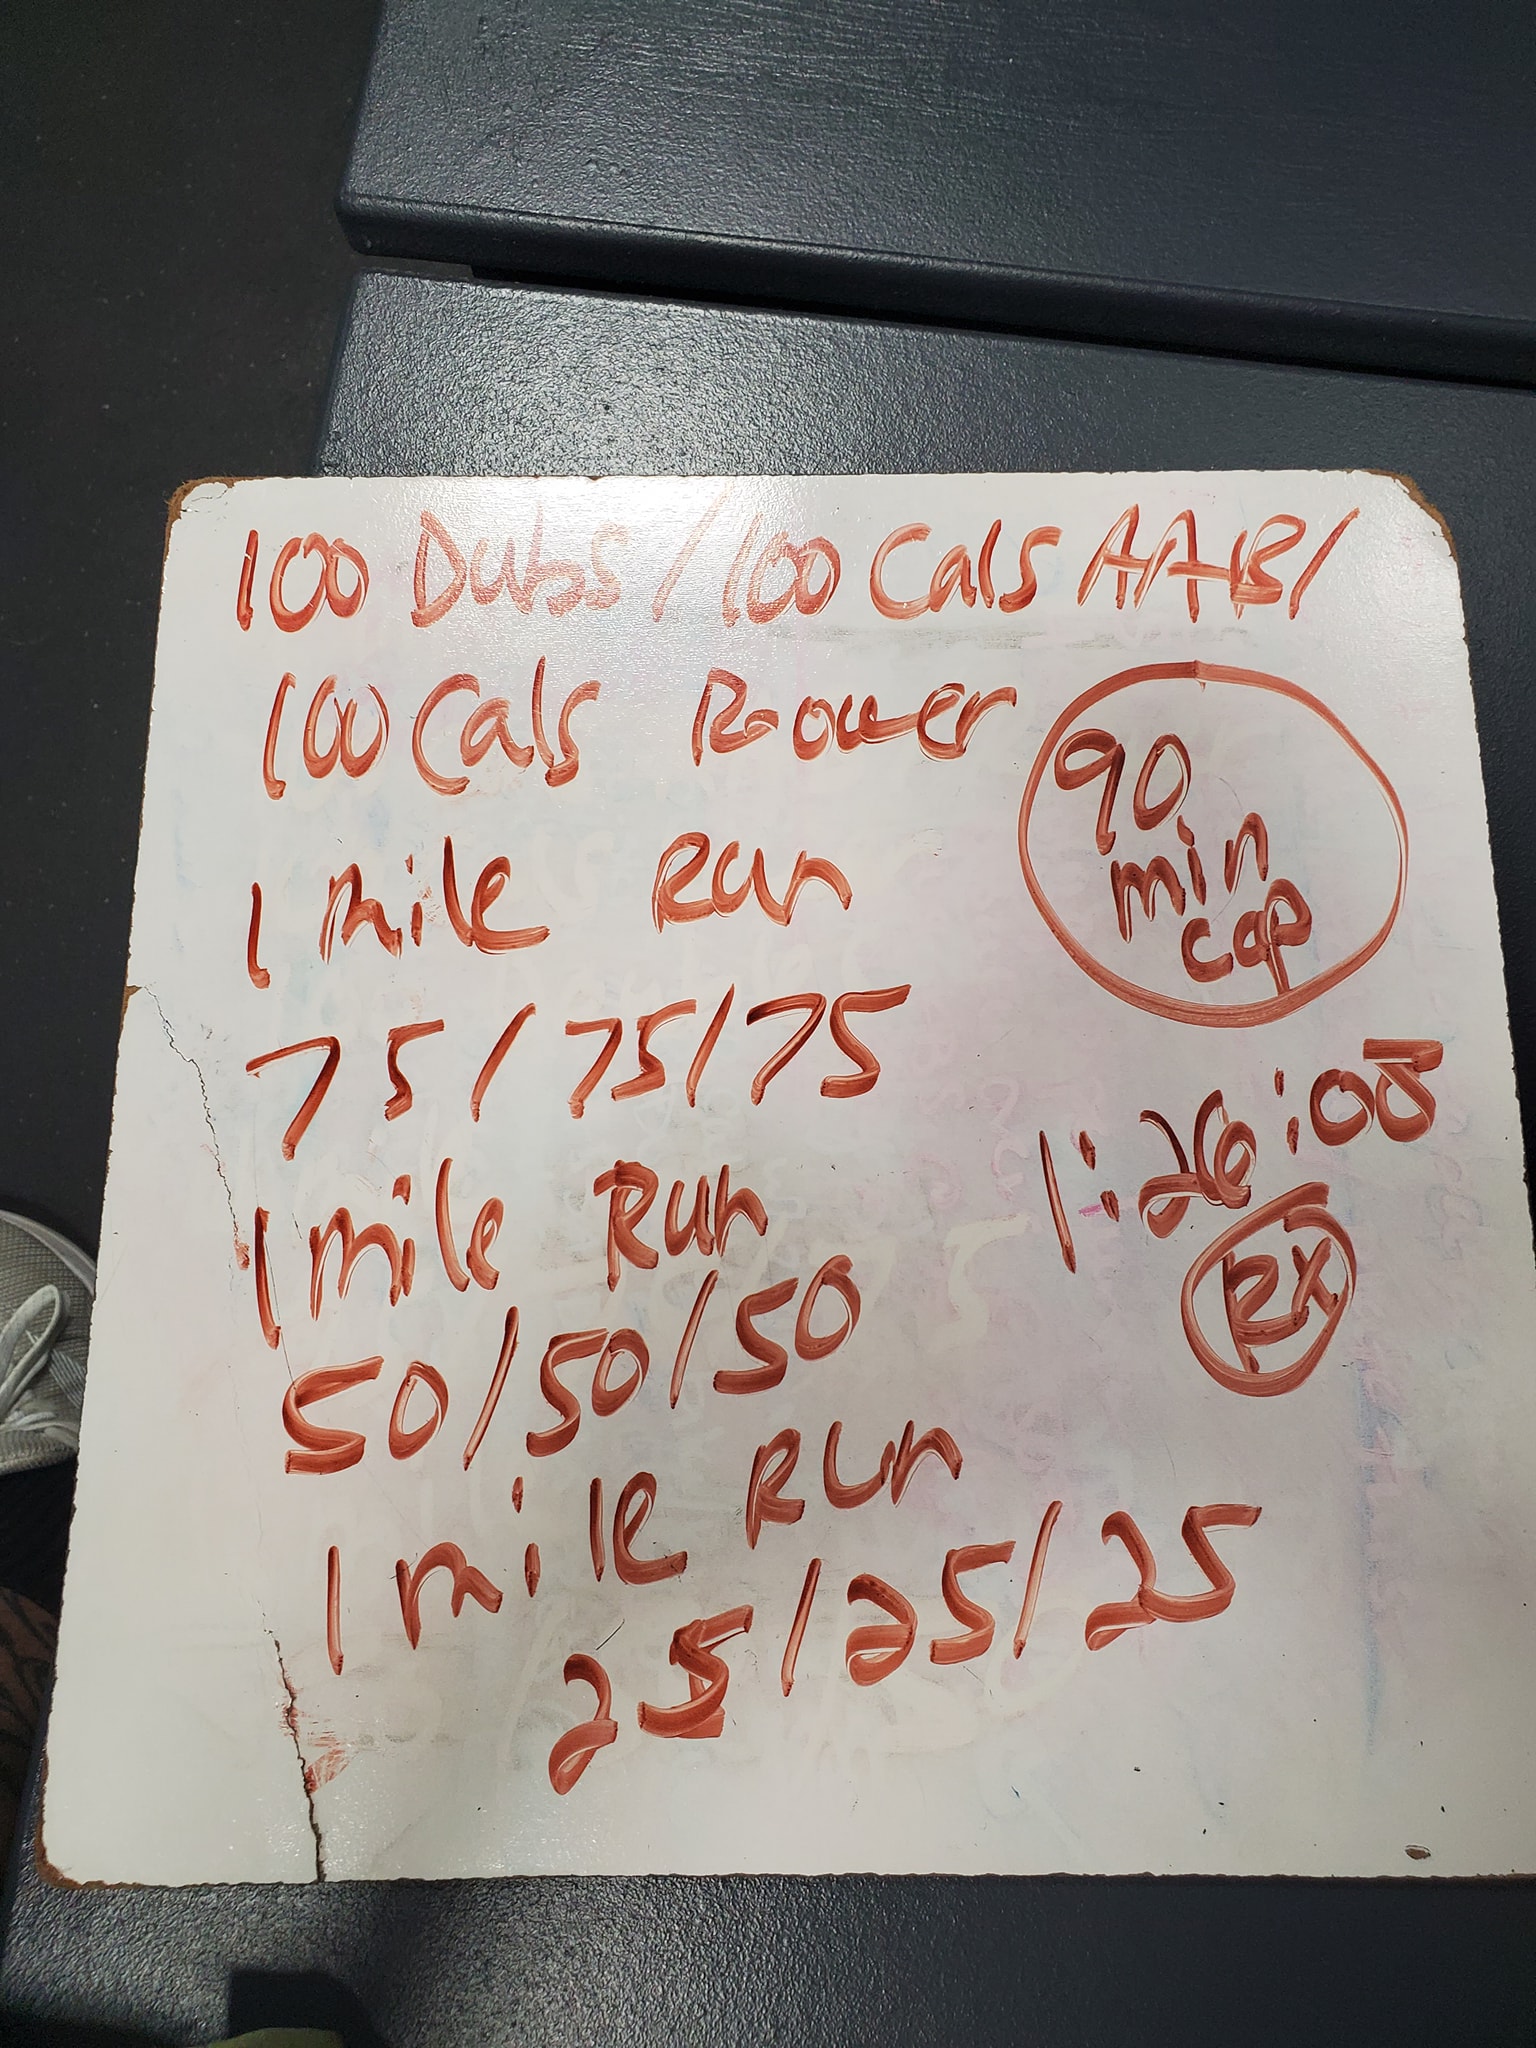 100 Dubs / 100 Cals AAB /
100 Cals Rower
90
min
cap
1 mile Run
75 / 75 / 75
1:26:08
Rx
1 mile Run
50 / 50 / 50
1 mile Run
25 / 25 / 25